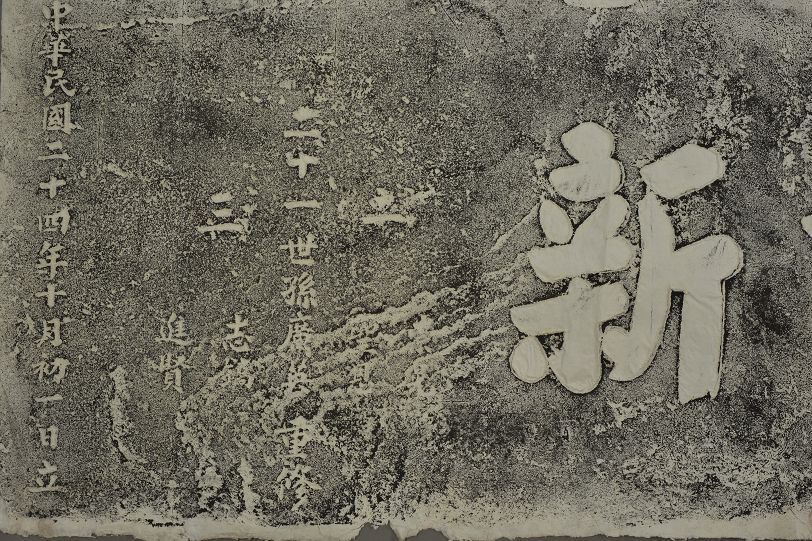 新
二十一世孫廣 重修
三 志
進賢
中華民國二十四年十月初一日立